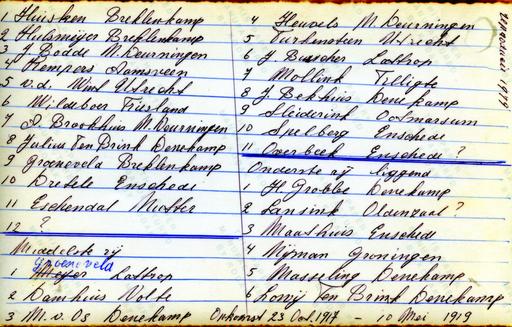 1 Huisken Breklenkamp
2 Hulsmeijer Breklenkamp
3 J Bodde M. Deurningen
4 Kempers
5 v.d. Wint Utrecht
6 Wildeboer Friesland
7 Broekhuis M. Deurningen
8 Julius Ten Brink Denekamp
9 Groeneveld Breklenkamp
10 Drekels Enschede
11 Eschendal Munster
12 ?
Middelste rij
Groeneveld
1 Meijer Lattrop
2 Damhuis Volte
3 M. v. Os Denekamp
4 Heuvels M. Deurningen
5 Turkenstein Utrecht
6 J Busscher Lattrop
7 Mollink Tilligte
8 J Bekhuis Denekamp
9 Sleiderink Ootmarsum
10 Spelberg Enschede
11 Overbeek Enschede ?
Onderste rij liggend
1 H Grobbe Denekamp
2 Lansink Oldenzaal ?
3 Maathuis Enschede
4 Nijman Groningen
5 Masseling Denekamp
6 Ten Brink Denekamp
Opkomst 23 Oct. 1917 - 10 Mei 1919